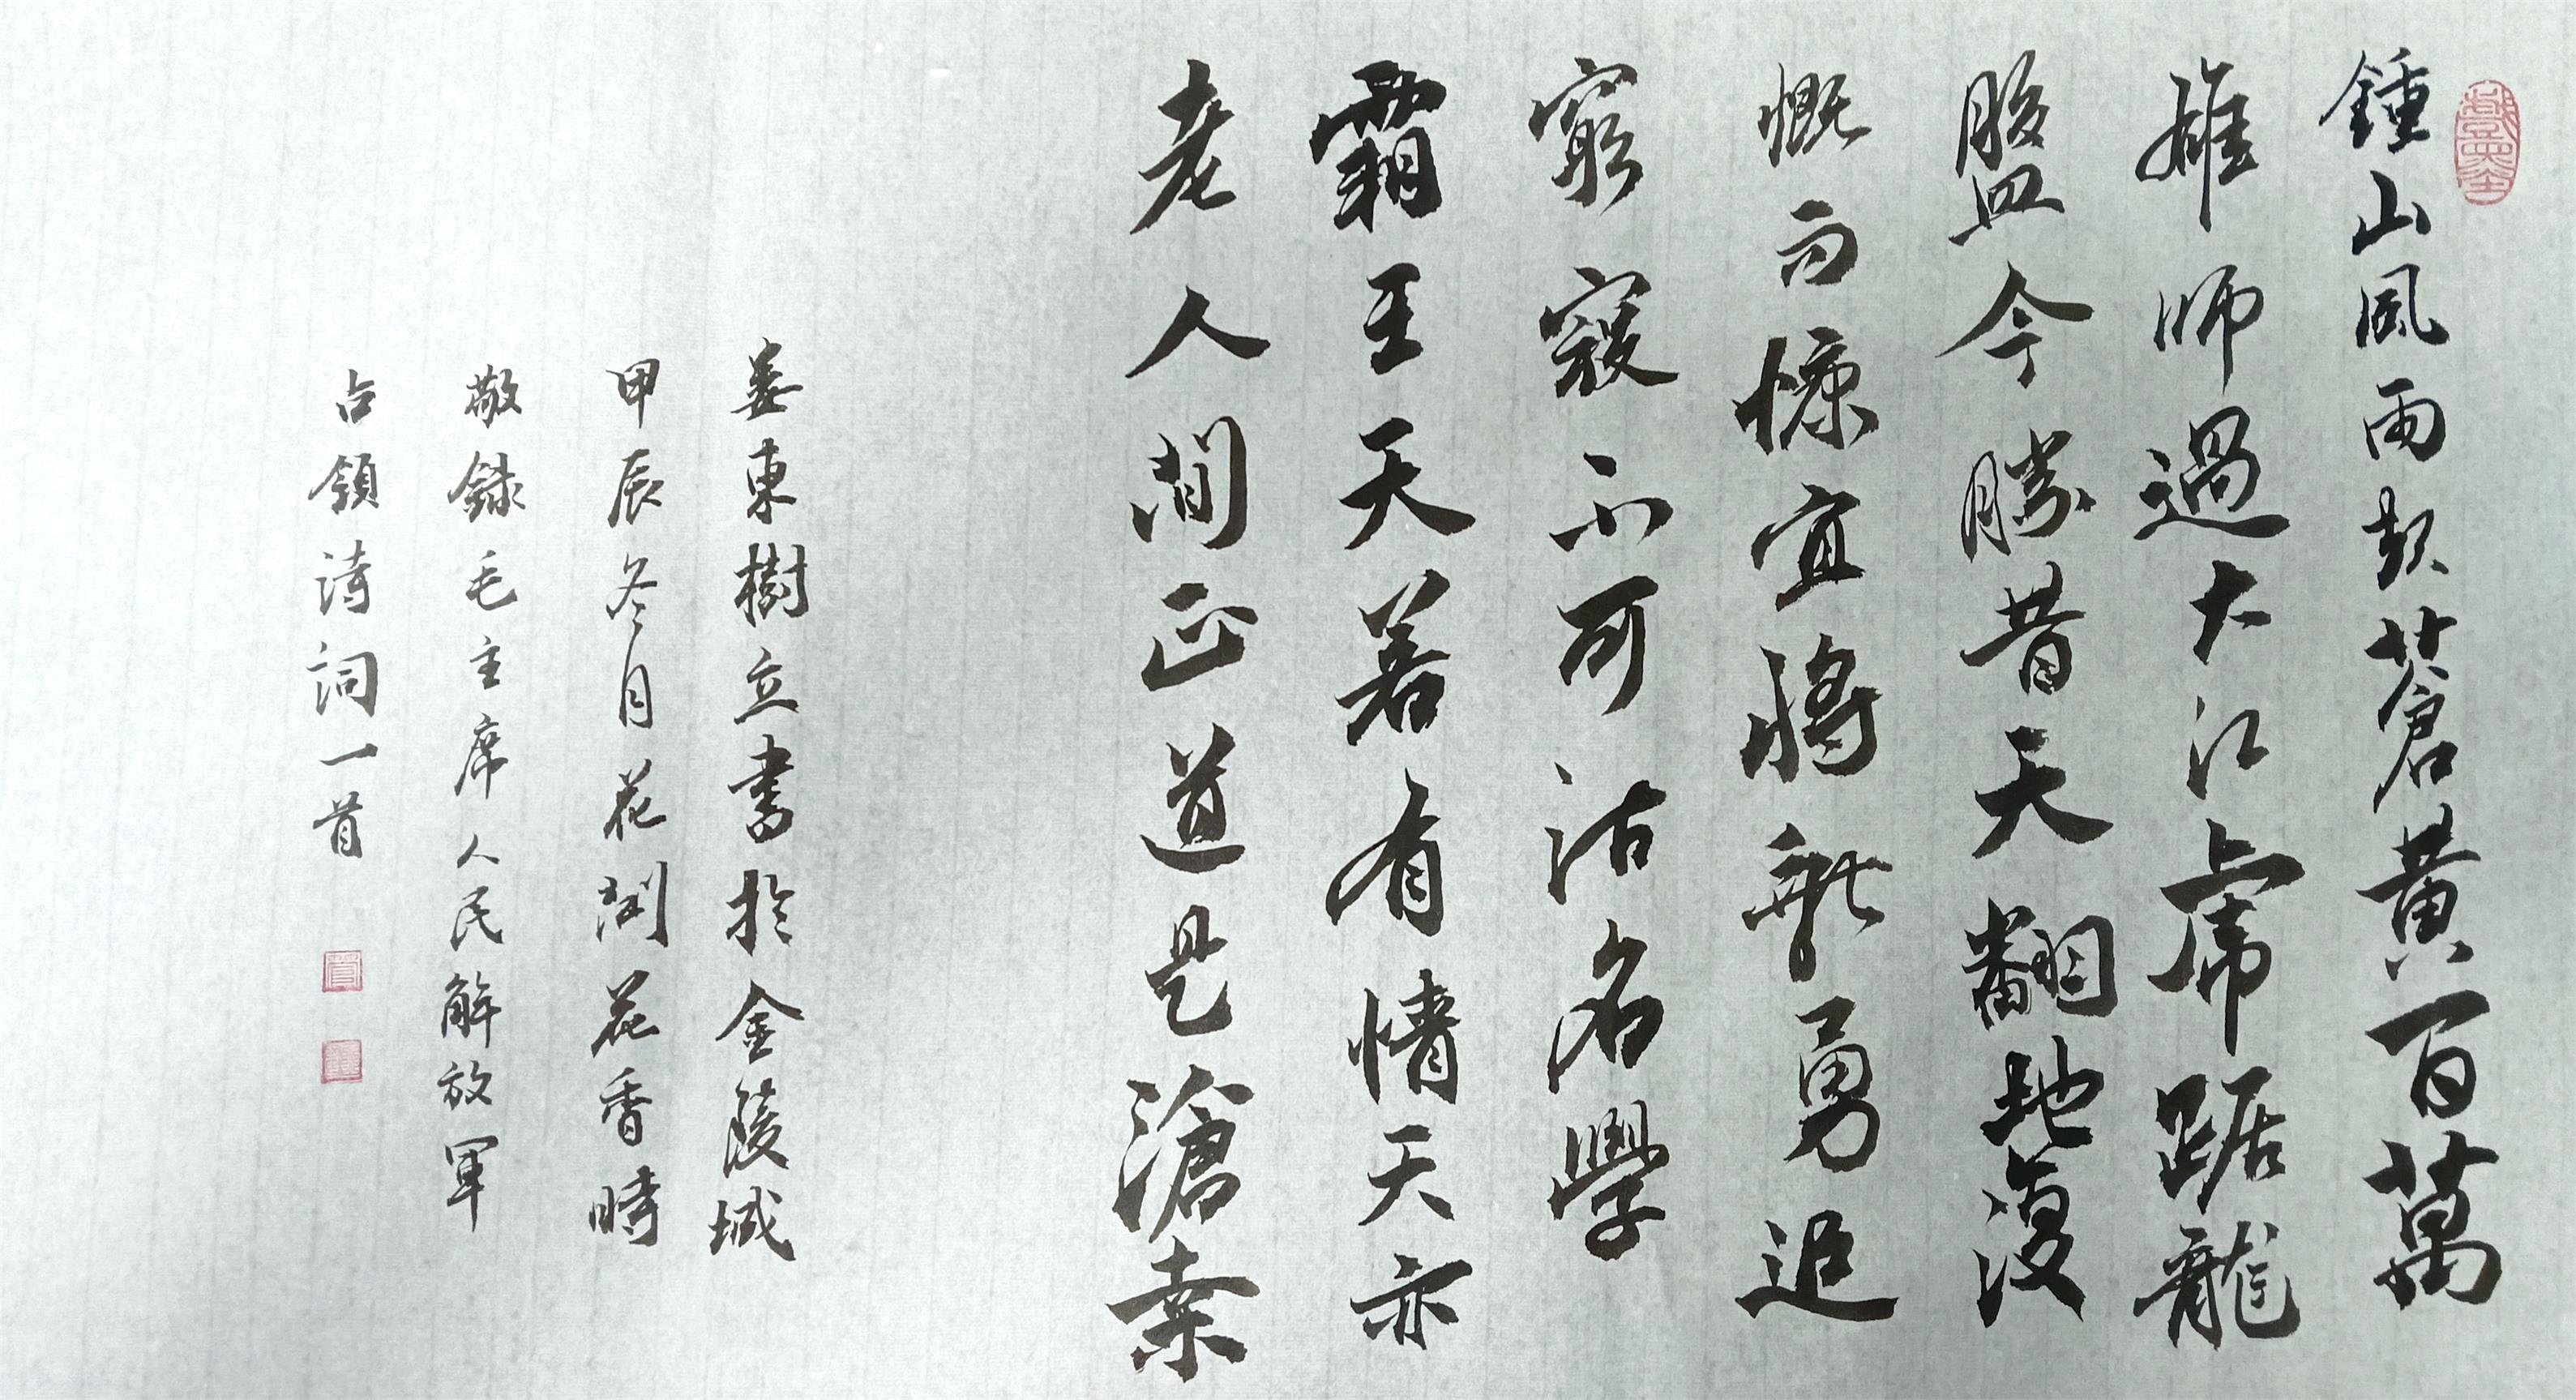 鍾山風雨起蒼黄百萬
雄師過大江虎踞龍
盤今勝昔天翻地復
慨而慷宜將剩勇追
窮寇不可沽名學
霸王天若有情天亦
老人間正道是滄桑
姜東樹立書於金陵城
甲辰冬月花開花香時
敬録毛主席人民解放軍
占領詩詞一首